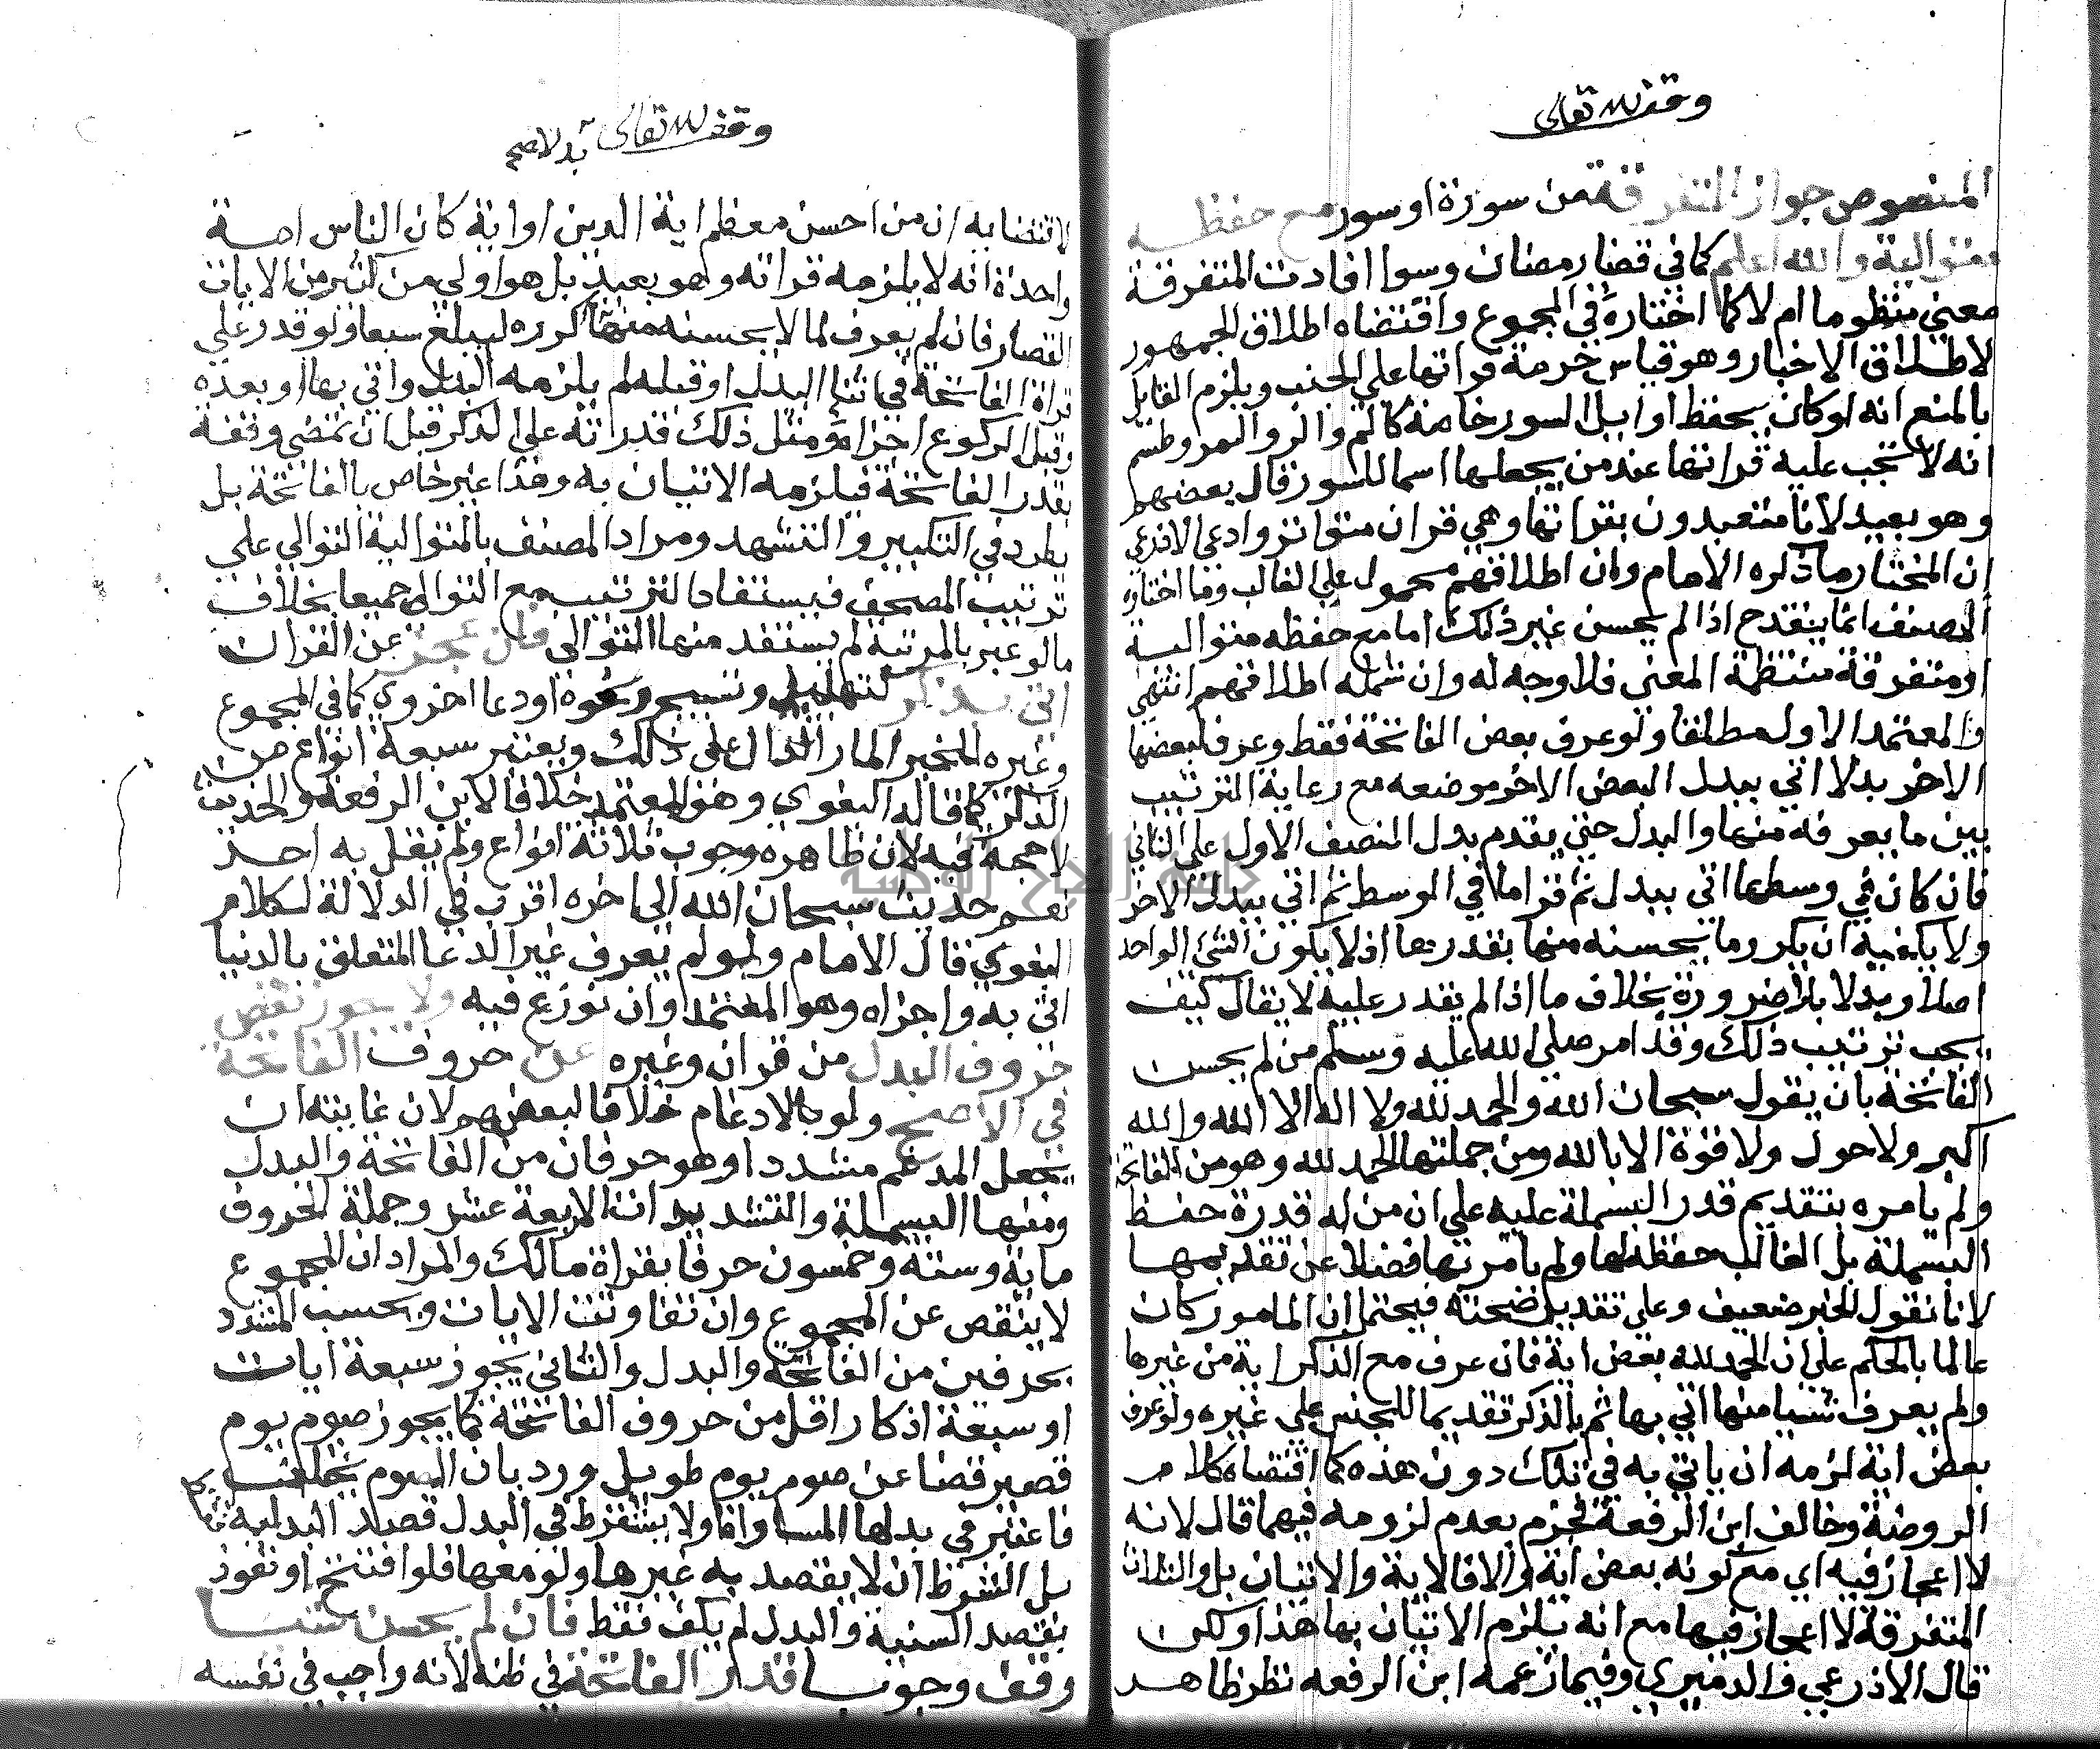 وقف لله تعالى
المنصوص جواز المتفرقة من سورة او سور مع حفظه
متوالية والله اعلم كما في قضا رمضان وسوا افادت المتفرقة
معني منظوما ام لا كما اختاره في المجموع واقتضاه اطلاق الجمهور
لاطلاق الاخبار وهو قياس حرمة قراتها علي الجنب ويلزم القايل
بالمنع انه لو كان يحفظ اوايل السور خاصة كالم والر والمر وطسم
انه لا تجب عليه قراتها عند من يجعلها اسما للسور قال بعضهم
وهو بعيد لانا متعبدون بقراتها وهي قران متواتر وادعي الاذرعي
ان المختار ما ذكره الامام وان اطلاقهم محمول علي الغالب وما اختاره
المصنف انما ينقدح اذا لم يحسن غير ذلك اما مع حفظه متوالية
او متفرقة منتظمة المعني فلا وجه له وان شمله اطلاقهم انتهي
والمعتمد الاول مطلقا ولو عرف بعض الفاتحة فقط وعرف لبعضها
الاخر بدلا اتي ببدل البعض الاخر موضعه مع رعاية الترتيب
بين ما يعرفه منها والبدل حتي يقدم بدل النصف الاول علي الثاني
فان كان في وسطها اتي ببدل ثم قرا ما في الوسط ثم اتي ببدل الاخر
ولا يكفيه ان يكرر ما يحسنه منها بقدرها اذ لا يكون الشئ الواحد
اصلا وبدلا بلا ضرورة بخلاف ما اذا لم يقدر عليه لا يقال كيف
يجب ترتيب ذلك وقد امر صلى الله عليه وسلم من لم يحسن
الفاتحة بان يقول سبحان الله والحمد لله ولا اله الا الله والله
اكبر ولا حول ولا قوة الا بالله ومن جملتها الحمد لله وهو من الفاتحة
ولم يامره بتقديم قدر البسملة عليه علي ان من له قدرة حفظ
البسملة بل الغالب حفظه لها ولم يامر بها فضلا عن تقديمها
لانا نقول الخبر ضعيف وعلي تقدير صحته فيحتمل ان المامور كان
عالما بالحكم علي ان الحمد لله بعض اية فان عرف مع الذكر اية من غيرها
ولم يعرف شيا منها اتي بها ثم بالذكر تقديما للجنس علي غيره ولو عرف
بعض اية لزمه ان ياتي به في تلك دون هذه كما اقتضاه كلام
الروضة وخالف ابن الرفعة فجزم بعدم لزومه فيهما قال لانه
لا اعجاز فيه اي مع كونه بعض اية والا فالاية والايتان بل والثلاث
المتفرقة لا اعجاز فيها مع انه يلزم الاتيان بها هذا ولكن
قال الاذرعي والدميري وفيما زعمه ابن الرفعه نظر ظاهر
وقف لله تعالى
بدلا صح
لاقتضايه ان من احسن معظم اية الدين او اية كان الناس امة
واحدة انه لا يلزمه قراته وهو بعيد بل هو اولي من كثير من الايات
القصار فان لم يعرف لما لا يحسنه منها كرره ليبلغ سبعا ولو قدر علي
قراة الفاتحة في اثنا البدل او قبله لم يلزمه البدل واتي بها او بعده
وقبل الركوع اجزاه ومثل ذلك قدرته علي الذكر قبل ان تمضي وقفة
بقدر الفاتحة فيلزمه الاتيان به وهذا غير خاص بالفاتحة بل
يطرد في التكبير والتشهد ومراد المصنف بالمتوالية التوالي علي
ترتيب المصحف فيستفاد الترتيب مع التوالي جميعا بخلاف
ما لو عبر بالمرتبة لم يستفد منها التوالي فان عجز عن القران
اتي بذكر كتهليل وتسبيح ونحوه او دعا اخروي كما في المجموع
وغيره للخبر المار الدال علي ذلك ويعتبر سبعة انواع من
الذكر كما قاله البغوي وهو المعتمد خلافا لابن الرفعة والحديث
لا حجة فيه لان ظاهره وجوب ثلاثة انواع ولم يقل به احد
نعم حديث سبحان الله الى اخره اقرب في الدلالة لكلام
البغوي قال الامام ولو لم يعرف غير الدعا المتعلق بالدنيا
اتي به واجزاه وهو المعتمد وان نوزع فيه ولا يجوز نقص
حروف البدل من قران وغيره عن حروف الفاتحة
في الاصح ولو بالادغام خلافا لبعضهم لان غايته ان
يجعل المدغم مشددا وهو حرفان من الفاتحة والبدل
ومنها البسملة والتشديدات الاربعة عشر وجملة الحروف
ماية وستة وخمسون حرفا بقراة مالك والمراد ان المجموع
لا ينقص عن المجموع وان تفاوتت الايات ويحسب المشدد
بحرفين من الفاتحة والبدل والثاني يجوز سبعة ايات
او سبعة اذكار اقل من حروف الفاتحة كما يجوز صوم يوم
قصير قضا عن صوم يوم طويل ورد بان الصوم يختلف
فاعتبر في بدلها المساواة ولا يشترط في البدل قصد البدلية
بل الشرط ان لا يقصد به غيرها ولو معها فلو افتتح او تعوذ
بقصد السنية والبدل لم يكف فقط فان لم يحسن شيا
وقف وجوبا قدر الفاتحة في ظنه لانه واجب في نفسه